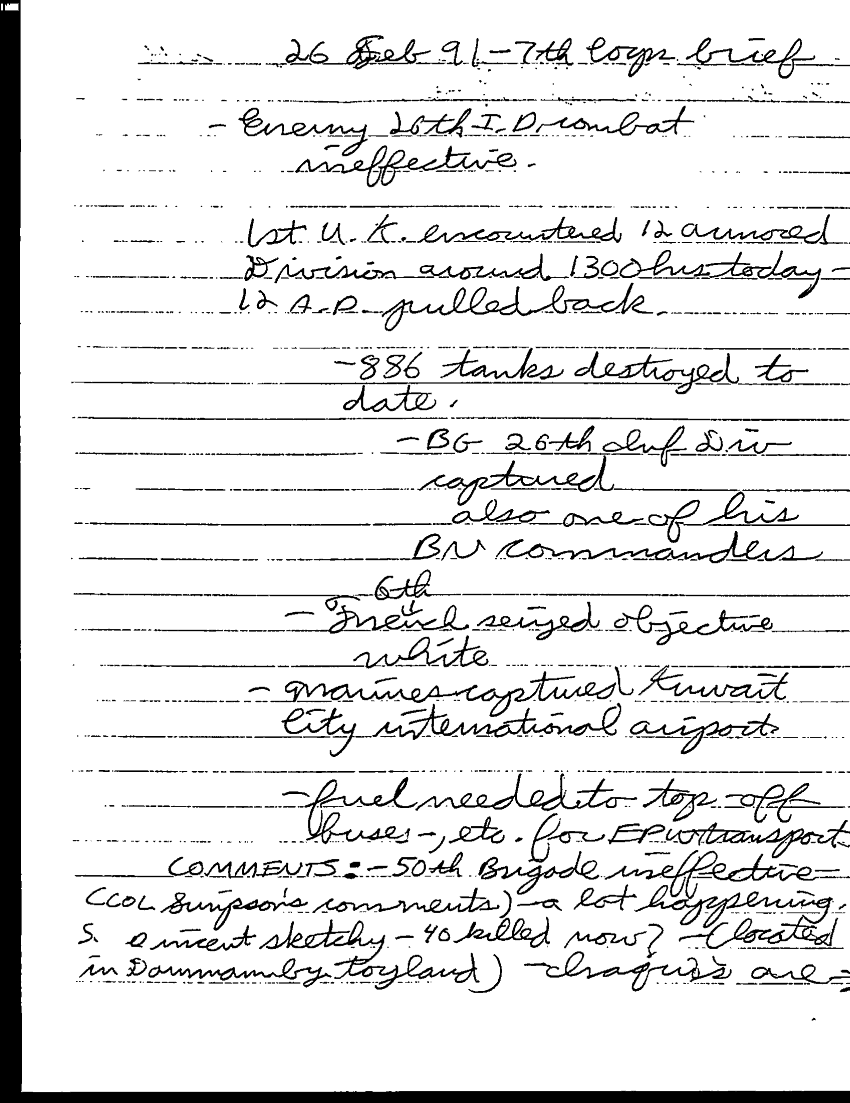 26 Feb 91-7th Corps brief
- Enemy 26th I.D. combat
ineffective.
1st U.K. encountered 12 armored
Division around 1300 hrs today -
12 A.D. pulled back.
- 886 tanks destroyed to
date.
- BG 26th Inf Div
captured
also one of his
BN commanders
6th
- French seized objective
white
- marines captured Kuwait
City international airport
- fuel needed to top-off
buses-, etc. for EPW transport
COMMENTS: - 50th Brigade ineffective -
(COL Simpson's comments) - a lot happening.
S. sketchy - 40 killed now? - (located
in Dammam by toyland) - Iraqui's are -